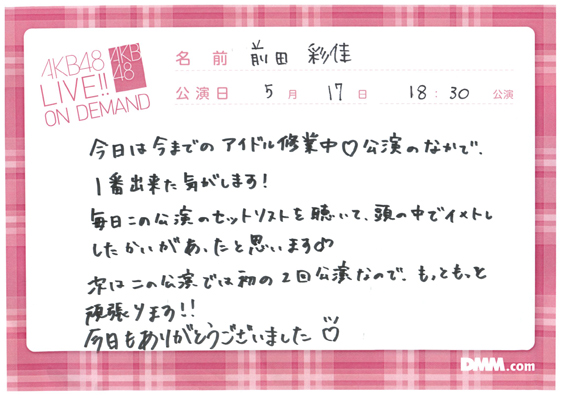 AKB48
LIVE!!
ON DEMAND
AKB
48
名前 前田 彩佳
公演日 5月 17日 18:30 公演
今日は今までのアイドル修業中♡公演のなかで、
1番出来た気がします！
毎日この公演のセットリストを聴いて、頭の中でイメトレ
したかいがあったと思います♪
次はこの公演では初の2回公演なので、もっともっと
頑張ります!!
今日もありがとうございました♡
DMM.com